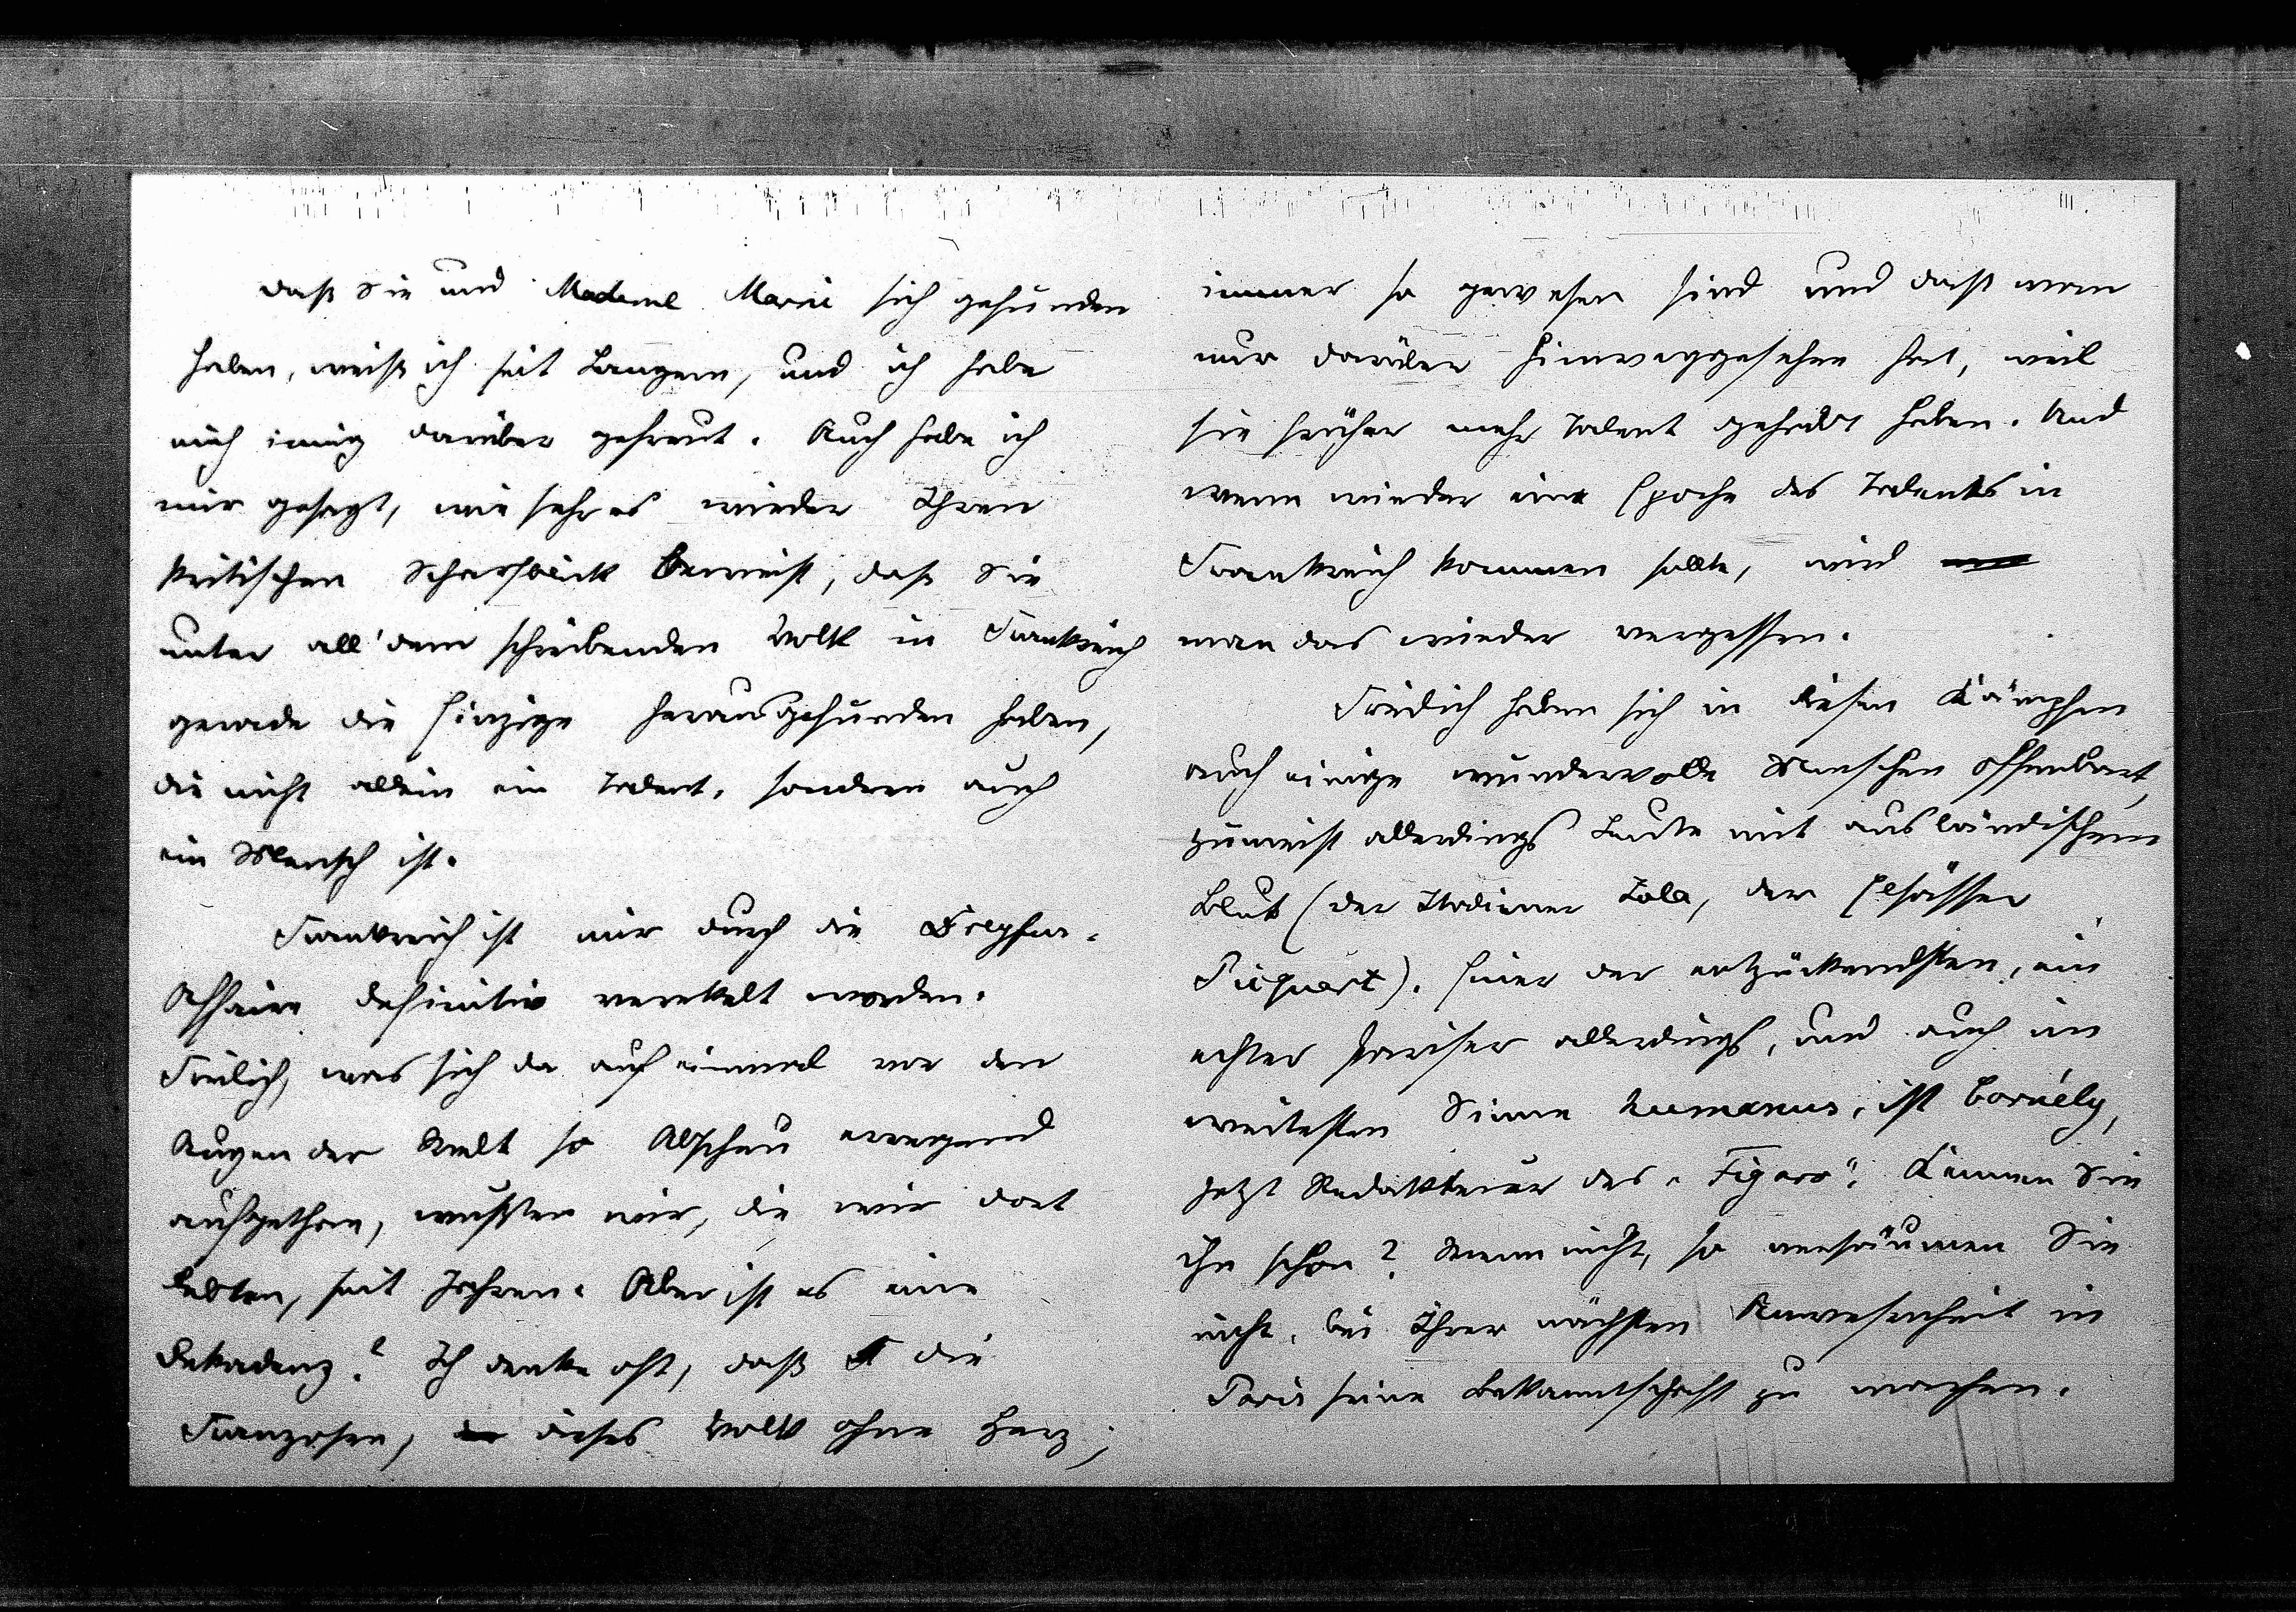 daß Sie und Madame Marni sich gefunden
haben, weiß ich seit Langem, und ich habe
mich innig darüber gefreut. Auch habe ich
mir gesagt, wie sehr es wieder Ihren
kritischen Scharfblick beweist, daß Sie
unter all' dem schreibenden Volk in Frankreich
gerade die Einzige herausgefunden haben,
die nicht allein ein Talent, sondern auch
ein Mensch ist.
Frankreich ist mir durch die Dreyfus-
Affaire definitiv verekelt worden.
Freilich, was sich da auf einmal vor den
Augen der Welt so Abscheu erregend
aufgethan, wußten wir, die wir dort
lebten, seit Jahren. Aber ist es eine
Dekadenz? Ich denke oft, daß die
Franzosen, dieses Volk ohne Herz,
immer so gewesen sind und daß man
nur darüber hinweggesehen hat, weil
sie früher mehr Talent gehabt haben. Und
wenn wieder eine Epoche des Talents in
Frankreich kommen sollte, wird
man das wieder vergessen.
Freilich haben sich in diesen Kämpfen
auch einige wundervolle Menschen offenbart,
zumeist allerdings Leute mit ausländischem
Blut (der Italiener Zola, der Elsässer
Picquart). Einer der entzückendsten, ein
echter Pariser allerdings, und auch im
weitesten Sinne humanus, ist Cornély,
jetzt Redakteur des „Figaro“. Kennen Sie
ihn schon? Wenn nicht, so versäumen Sie
nicht, bei Ihrer nächsten Anwesenheit in
Paris seine Bekanntschaft zu machen.